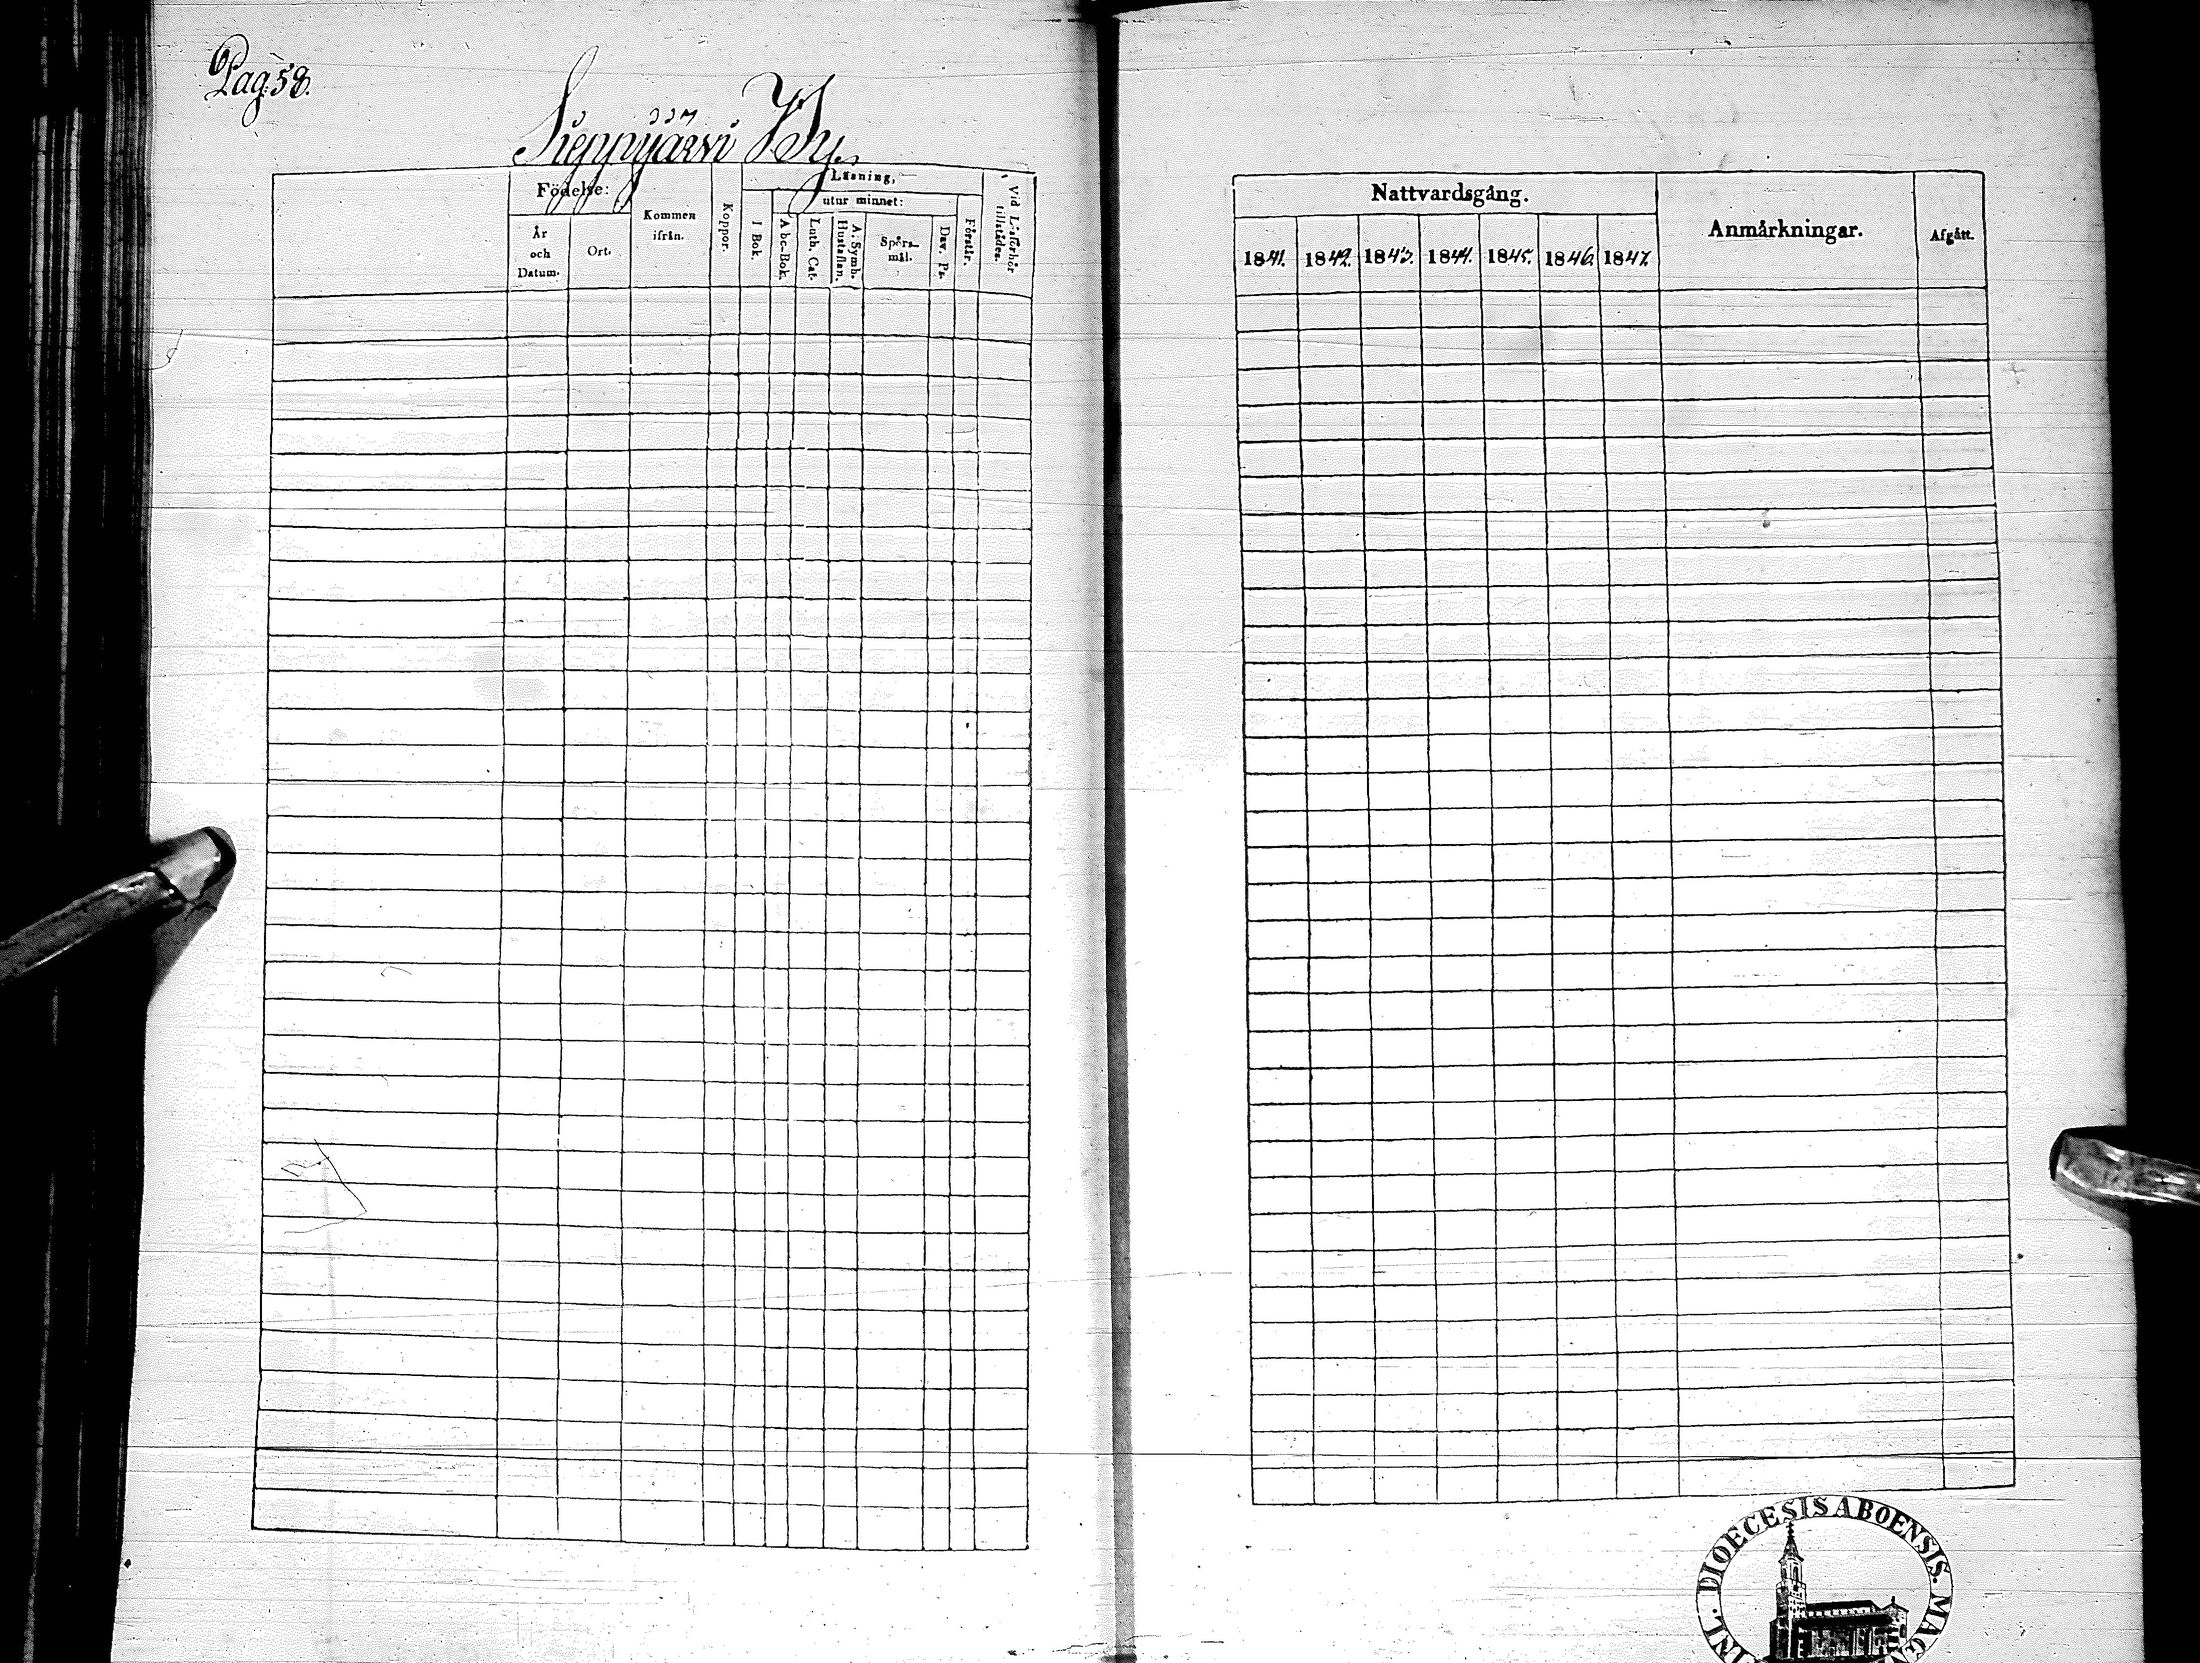 Pag. 58.
Sieppijärvi By.
Födelse:
Läsning,
utur minnet:
År
och
Datum.
Ort.
Kommen
ifrån.
Koppor.
I Bok.
Abc-Bok.
Luth. Cat.
A. Symb.
Hustaflan.
Spörs-
mål.
Dav. Ps.
Förstår.
Vid Läsförhör
tillstädes.
Nattvardsgång.
Anmärkningar.
Afgått.
1841. 1842. 1843. 1844. 1845. 1846. 1847.
DIOECESIS ABOENSIS. MAG
INL.